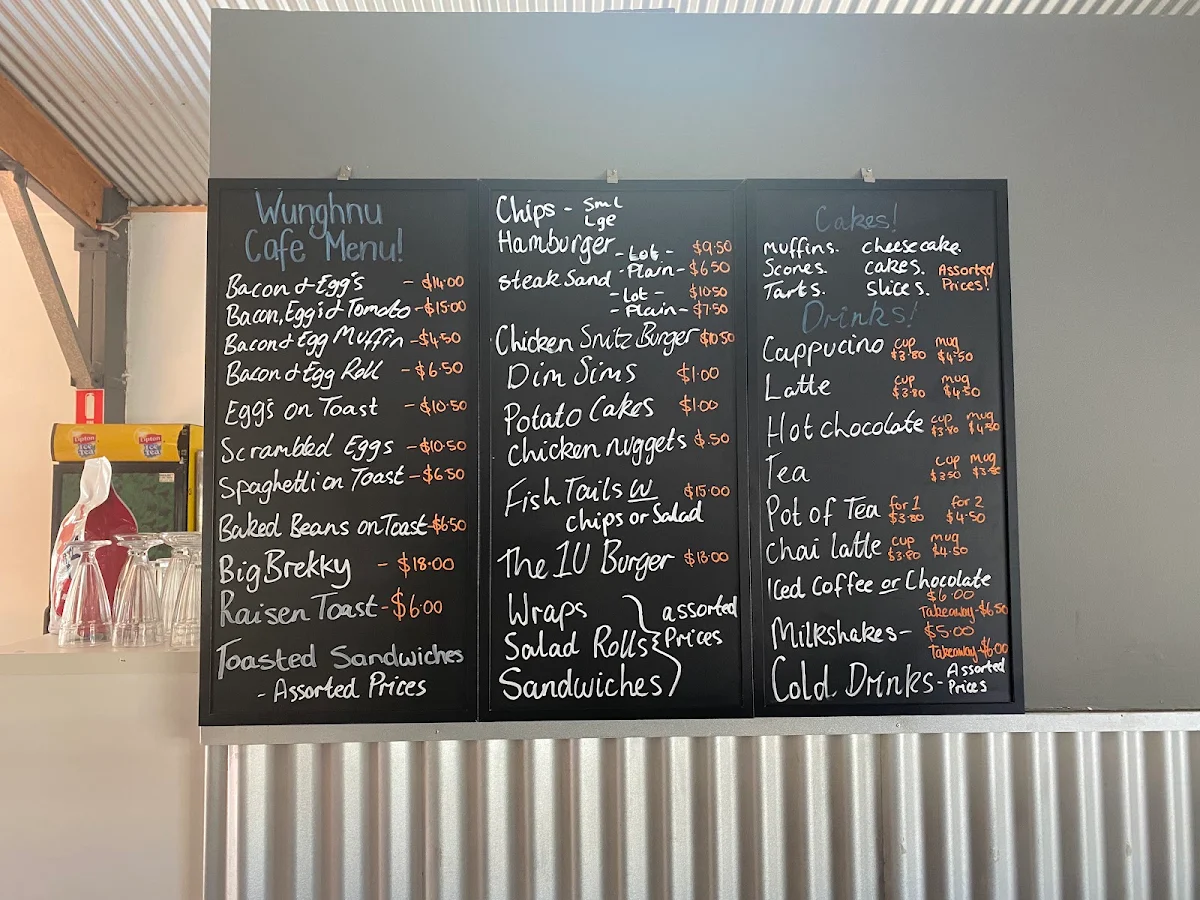 Wunghnu
Cafe Menu!
Bacon & Egg's - $14.00
Bacon, Egg's & Tomato - $15.00
Bacon & Egg Muffin - $4.50
Bacon & Egg Roll - $6.50
Egg's on Toast - $10.50
Scrambled Eggs - $10.50
Spaghetti on Toast - $6.50
Baked Beans on Toast - $6.50
Big Brekky - $18.00
Raisen Toast - $6.00
Toasted Sandwiches
- Assorted Prices
Chips - Sml
Lge
Hamburger - Lot - $9.50
- Plain - $6.50
Steak Sand
- Lot - $10.50
- Plain - $7.50
Chicken Snitz Burger $10.50
Dim Sims $1.00
Potato Cakes $1.00
Chicken nuggets $.50
Fish Tails W $15.00
chips or Salad
The IU Burger $13.00
Wraps
Salad Rolls
Sandwiches
assorted
Prices
Cakes!
Muffins. cheesecake.
Scones. cakes.
Tarts. slices.
Assorted
Prices!
Drinks!
Cappucino cup $3.80 mug $4.50
Latte cup $3.80 mug $4.50
Hot chocolate cup $3.80 mug $4.50
Tea cup $3.50 mug
Pot of Tea for 1 $3.80 for 2 $4.50
Chai latte cup $3.80 mug $4.50
Iced Coffee or Chocolate
$6.00
Takeaway - $6.50
Milkshakes - $5.00
Takeaway - $6.00
Cold Drinks - Assorted
Prices
Lipton
Ice Tea
Lipton
Ice Tea